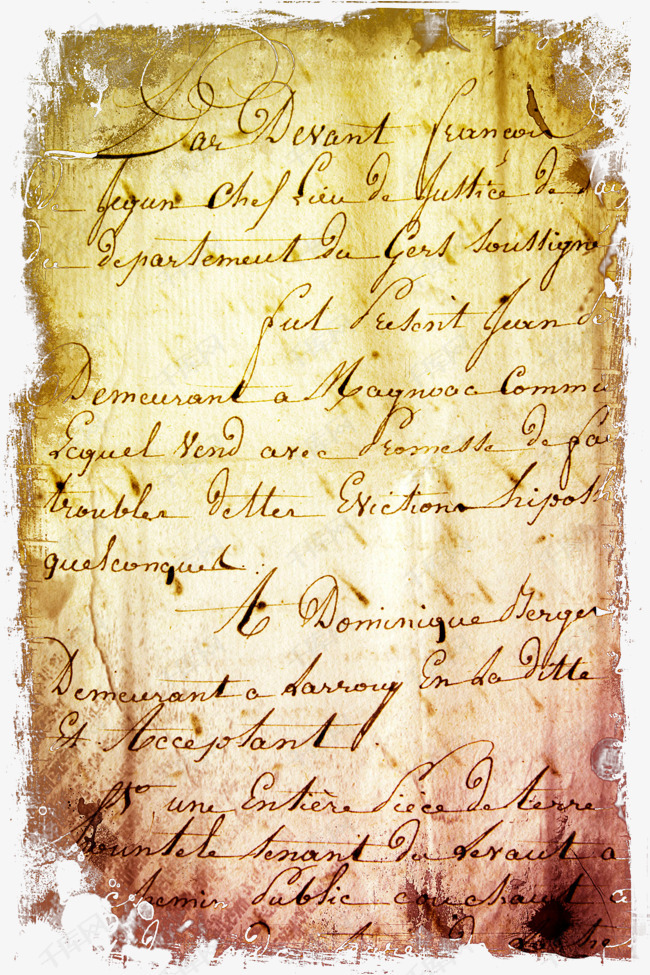 Par Devant françois
Jegun Chef Lieu de Justice de
departement du Gers Soussigne
fut Present Jean de
Demeurant a Magnoac Commu
Lequel Vend avec Promesse de fa
troubler dettes Evictions hipoth
quelconques
A Dominique Berger
Demeurant a Larrouy En La Ditte
Et Acceptant
1º une Entière Pièce de terre
tenant du Levant a
chemin Public couchant a